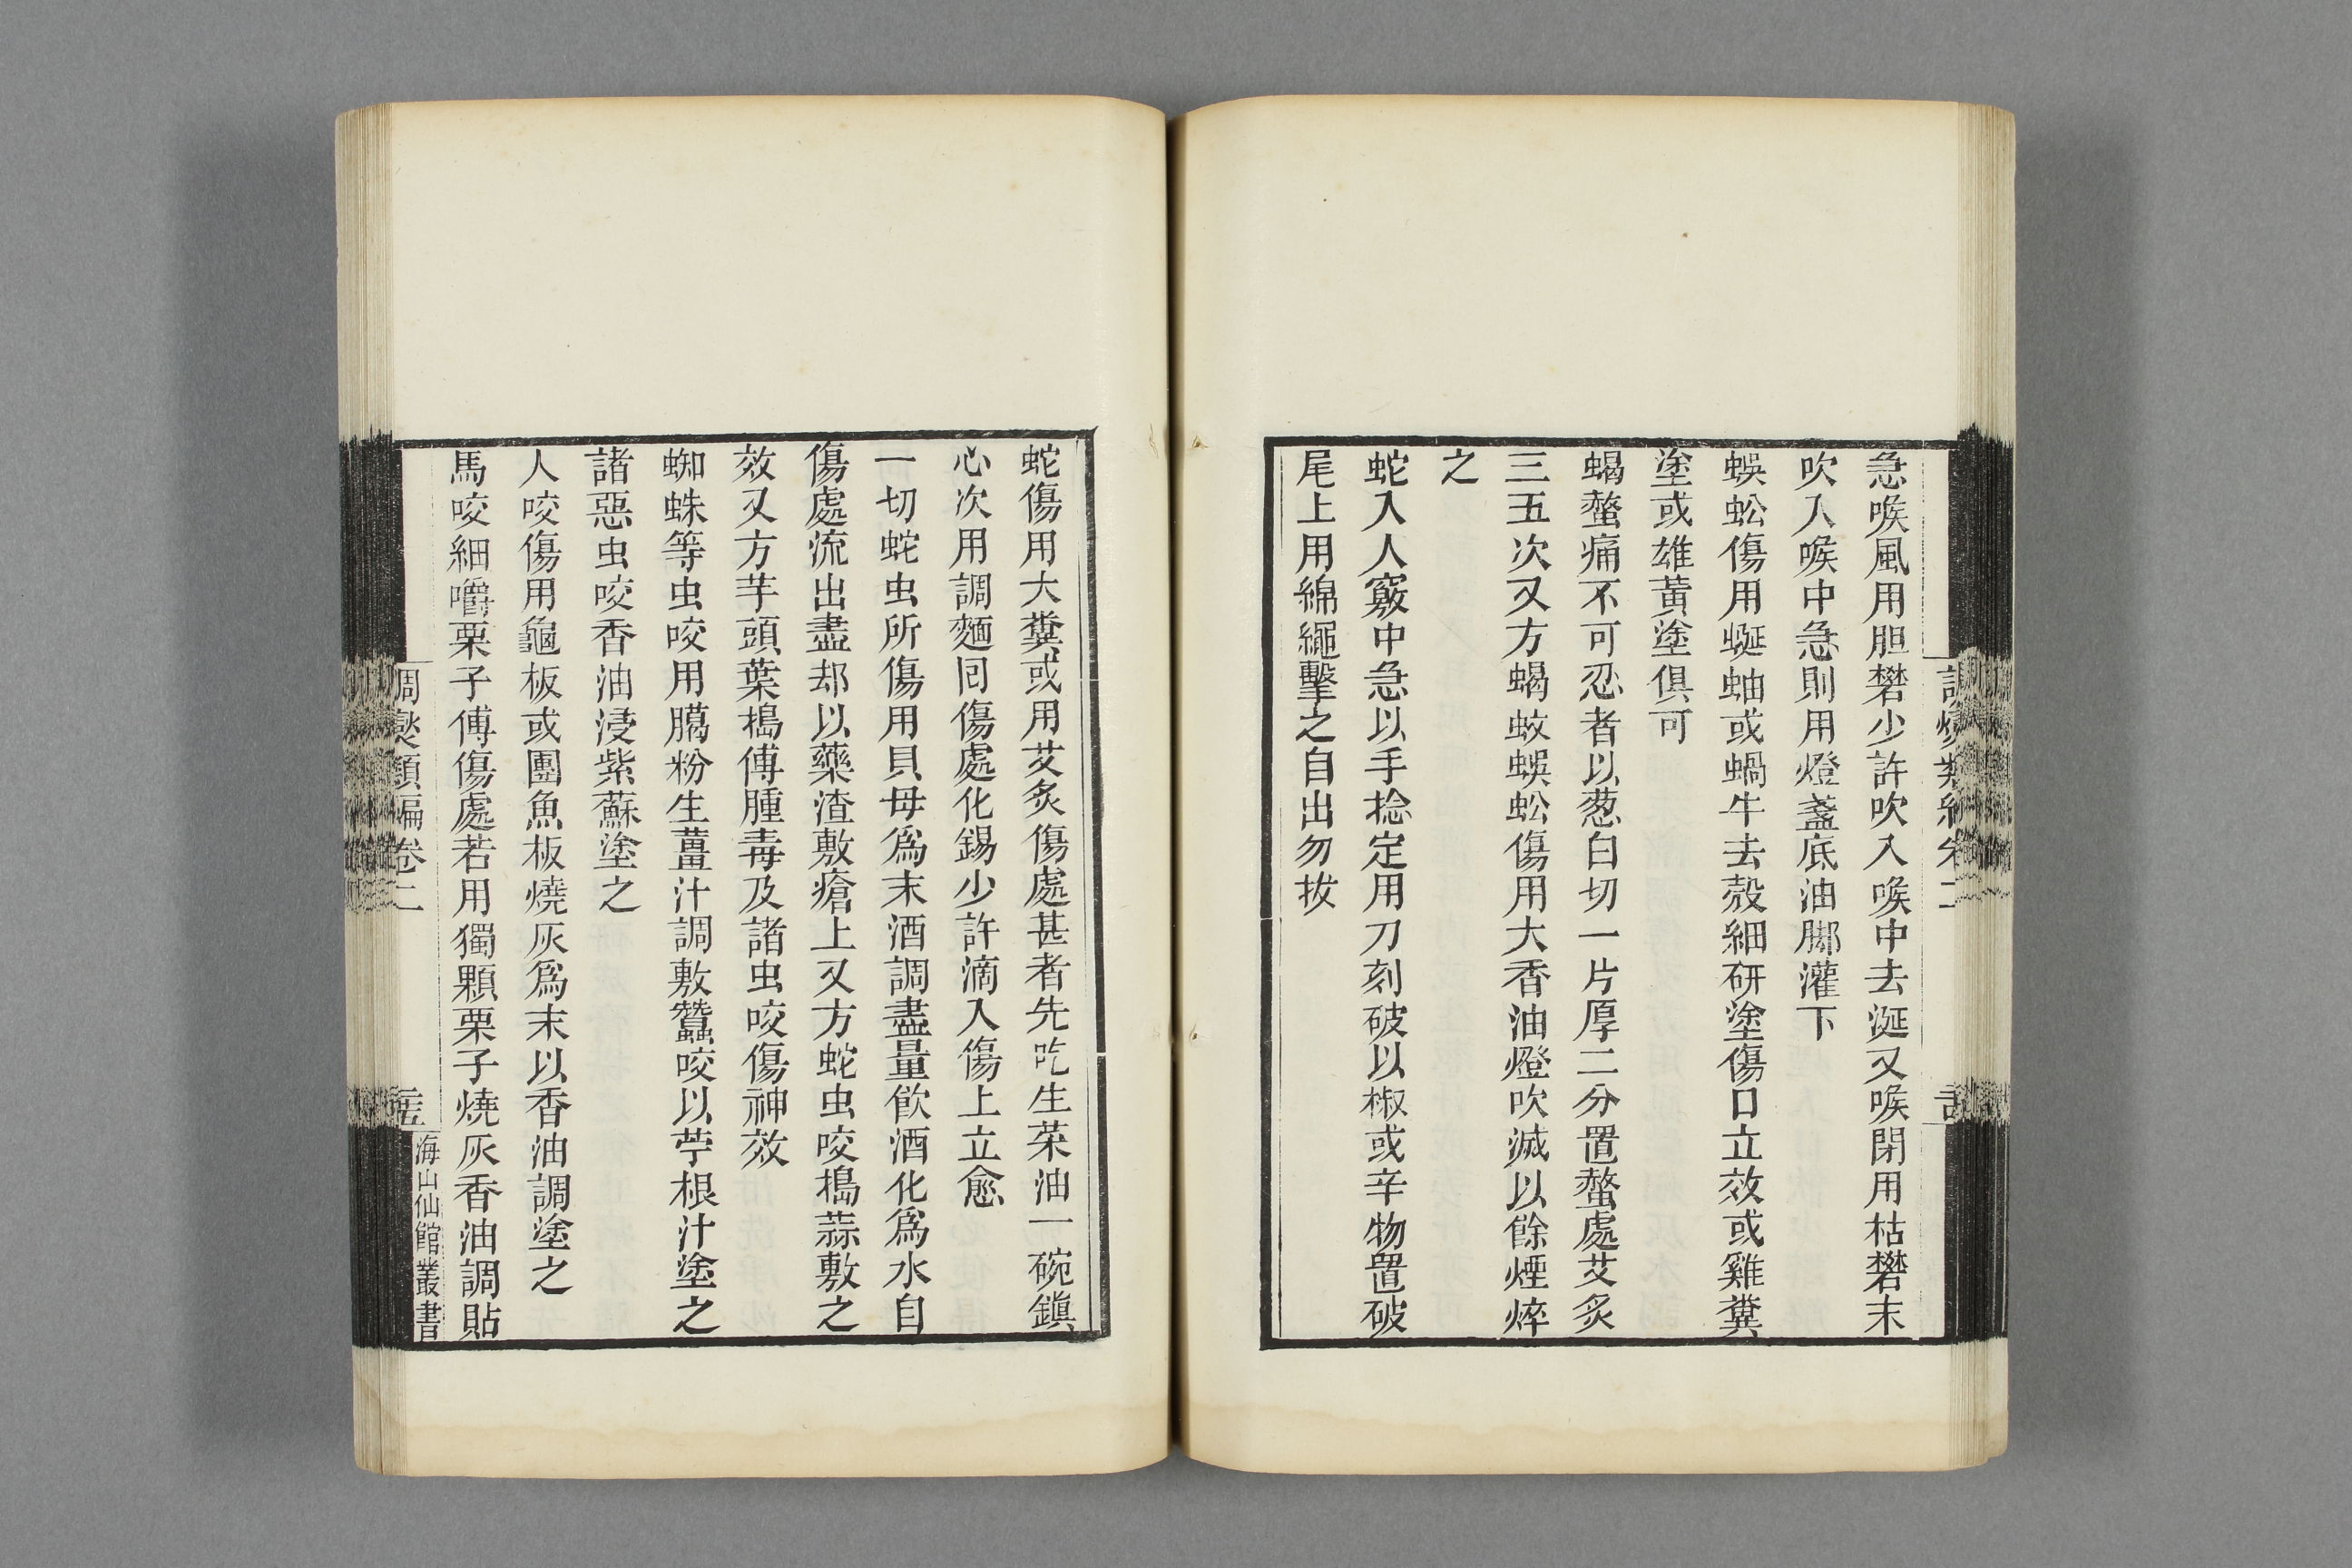 急喉風用胆礬少許吹入喉中去涎又喉閉用枯礬末
吹入喉中急則用燈盞底油脚灌下
蜈蚣傷用蜒蚰或蝸牛去殼細研塗傷口立效或雞糞
塗或雄黃塗俱可
蝎螫痛不可忍者以葱白切一片厚二分置螫處艾炙
三五次又方蝎蛟蜈蚣傷用大香油燈吹滅以餘煙焠
之
蛇入人竅中急以手捻定用刀刻破以椒或辛物置破
尾上用綿繩擊之自出勿拔
蛇傷用大糞或用艾炙傷處甚者先吃生菜油一碗鎭
心次用調麵回傷處化錫少許滴入傷上立愈
一切蛇虫所傷用貝母爲末酒調盡量飮酒化爲水自
傷處流出盡却以藥渣敷瘡上又方蛇虫咬搗蒜敷之
效又方芋頭葉搗傅腫毒及諸虫咬傷神效
蜘蛛等虫咬用膓粉生薑汁調敷蠶咬以苧根汁塗之
諸惡虫咬香油浸紫蘇塗之
人咬傷用龜板或團魚板燒灰爲末以香油調塗之
馬咬細嚼栗子傅傷處若用獨顆栗子燒灰香油調貼
調燮類編卷二
海山仙館叢書